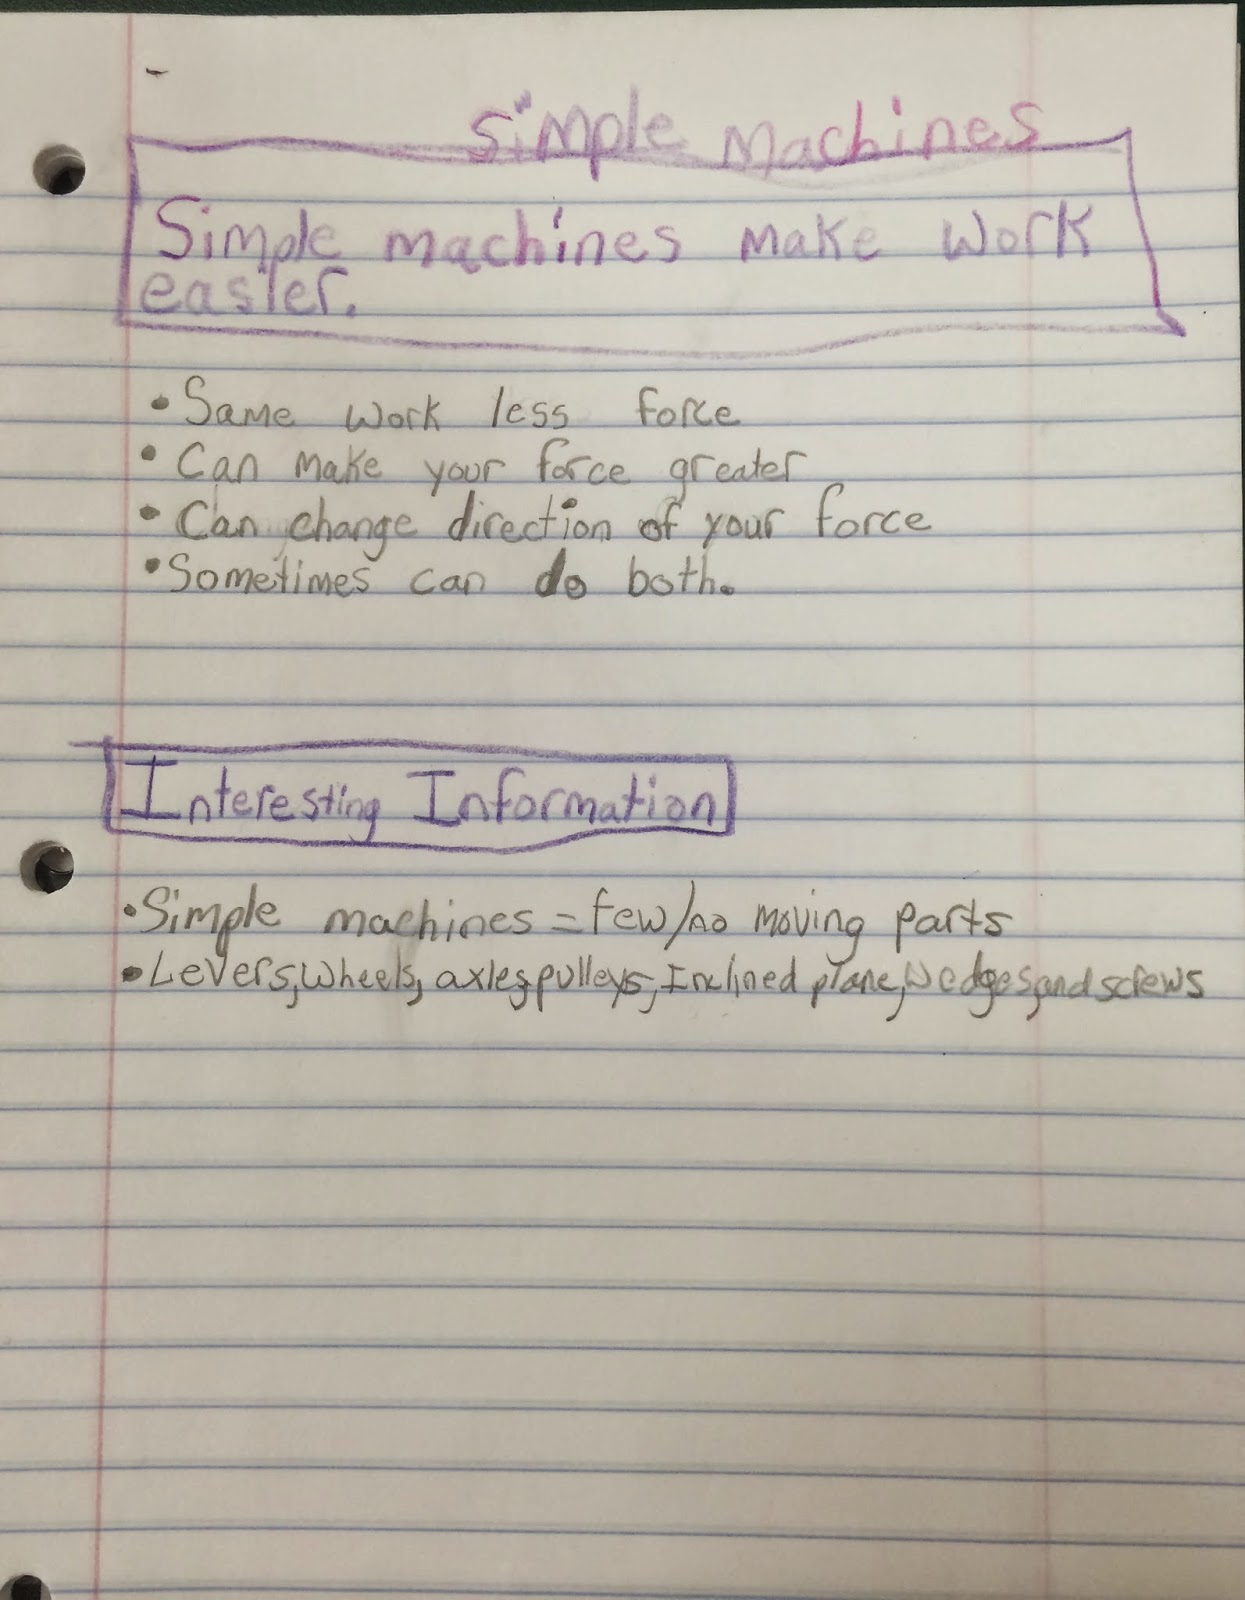 Simple Machines
Simple machines make work
easier.
• Same work less force
• Can make your force greater
• Can change direction of your force
• Sometimes can do both.
Interesting Information
• Simple machines = few/no moving parts
• Levers, wheels, axles, pulleys, Inclined plane, wedges, and screws